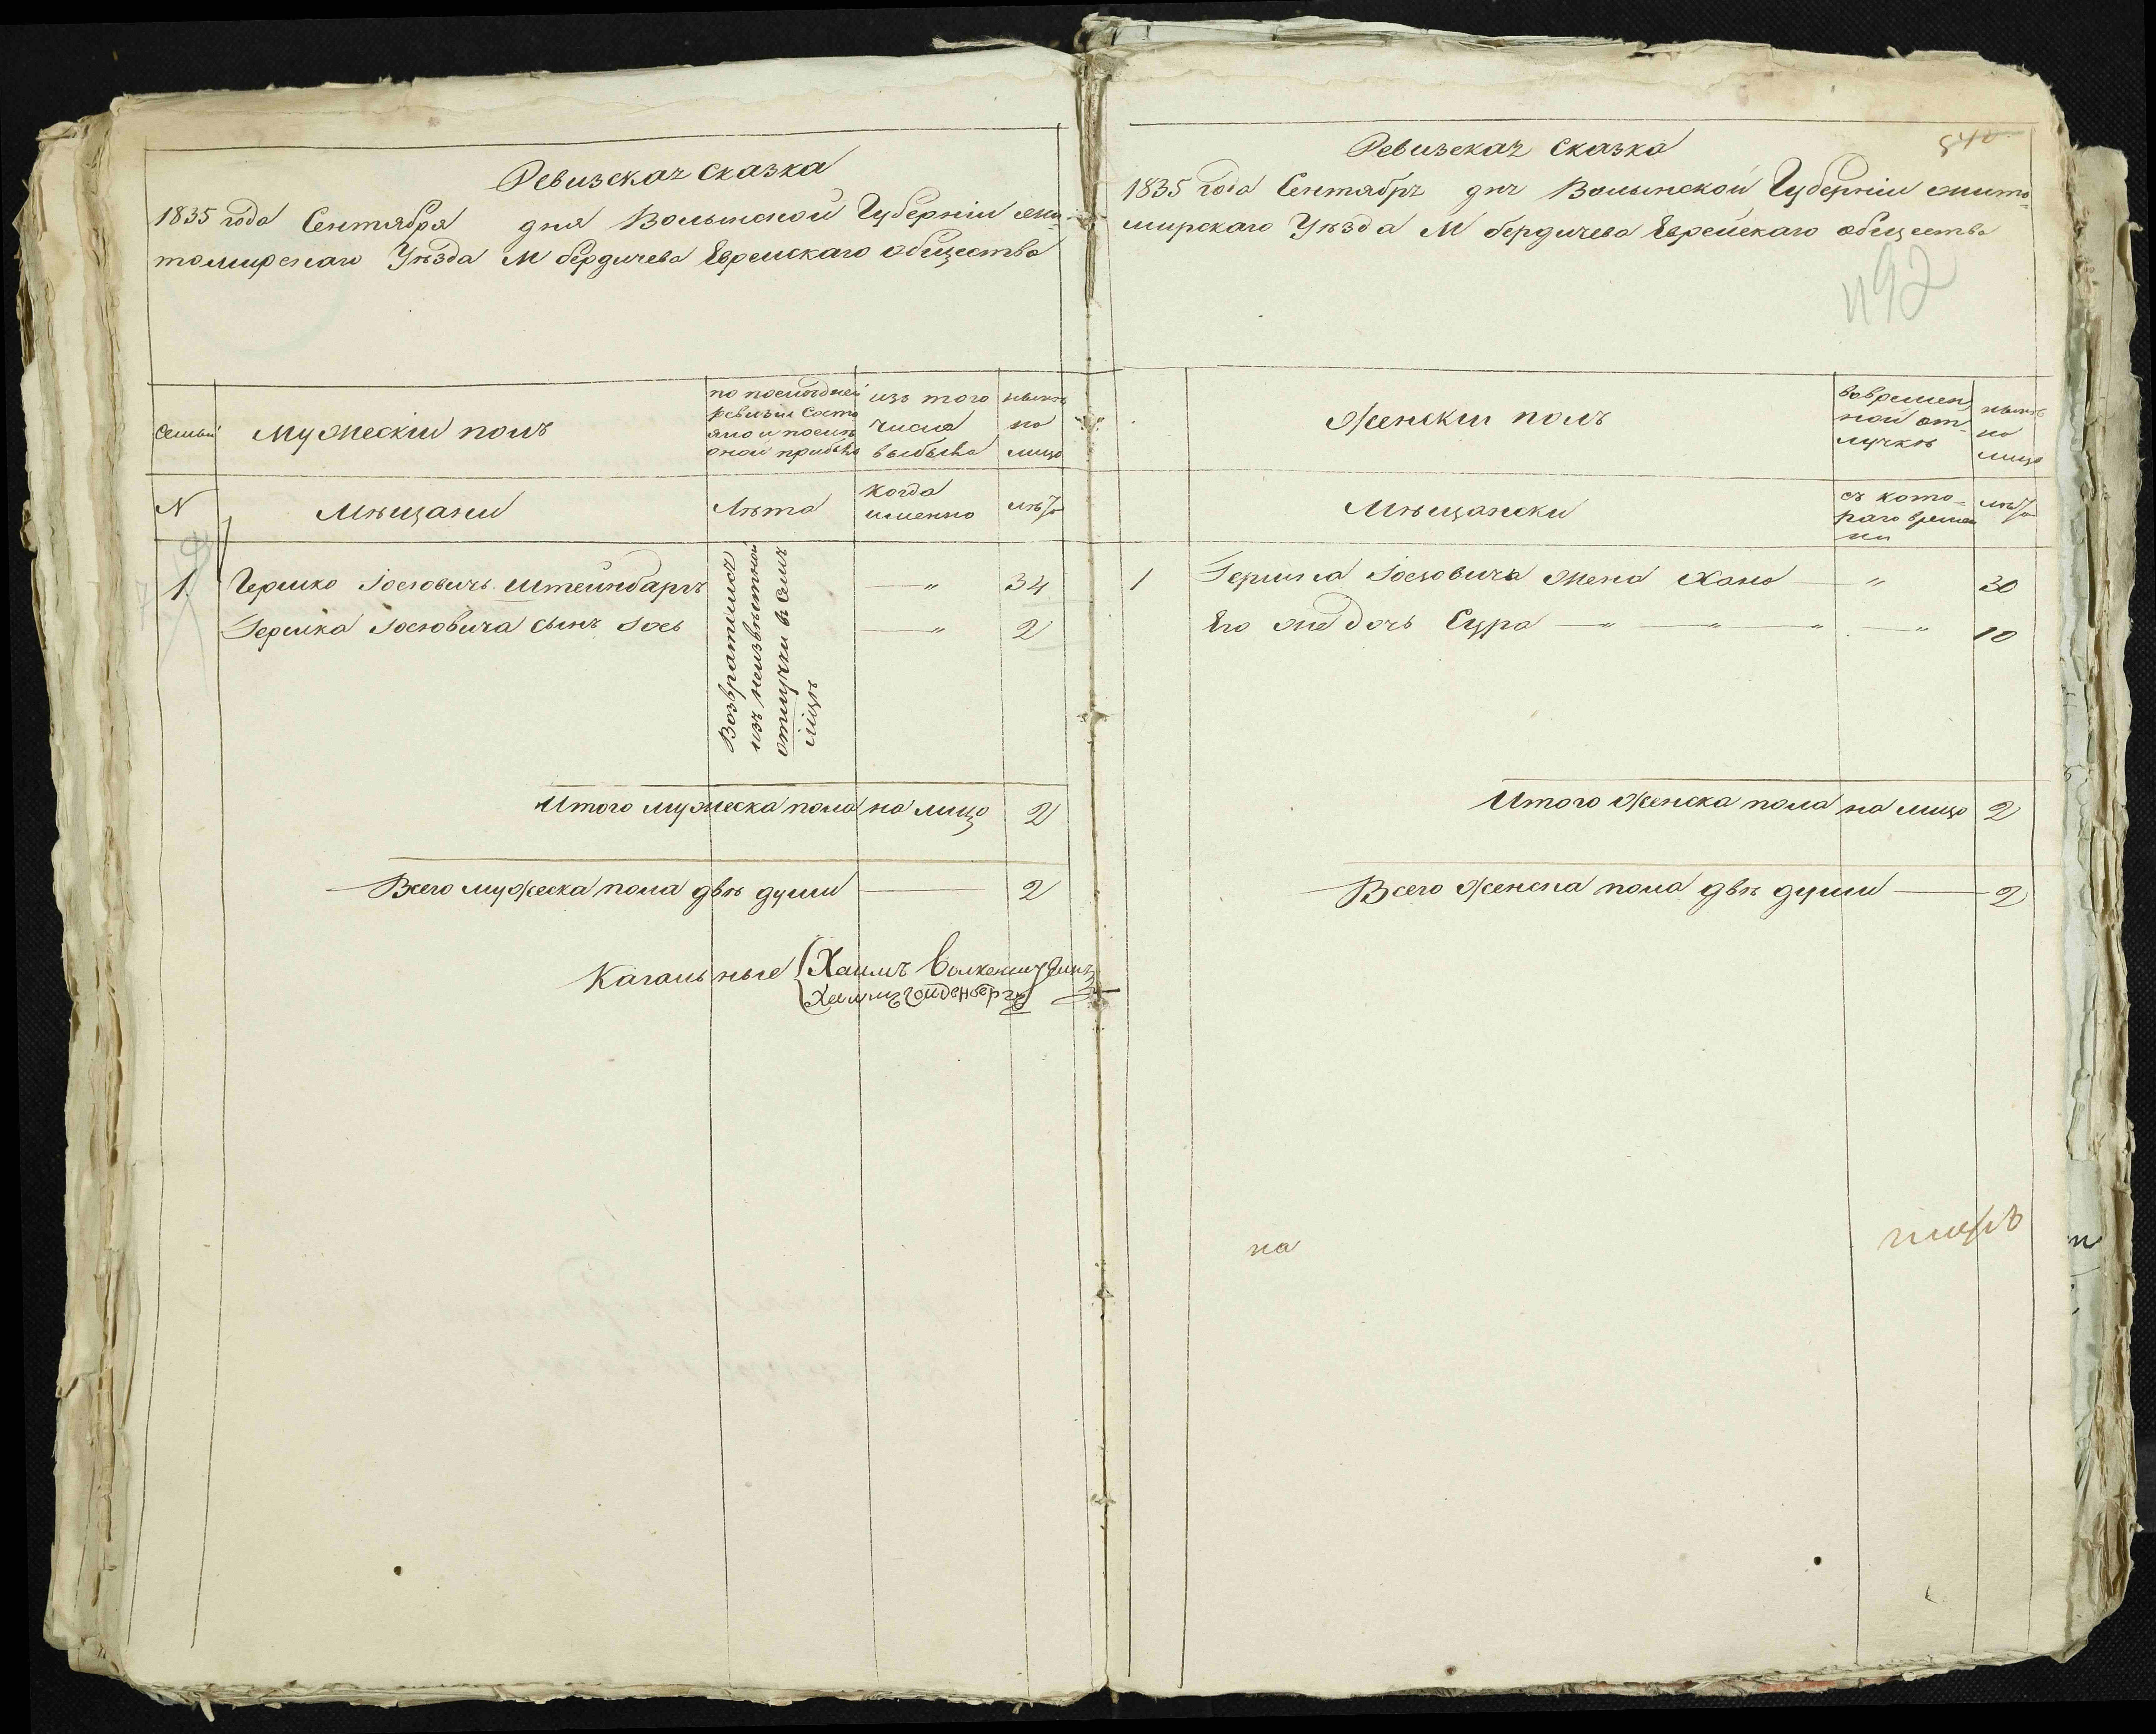 Ревизская сказка
1835 года Сентября дня Волынской Губерніи жи-
томирскаго Уѣзда М бердичева Еврейскаго общества
семьи
Мужескій полъ
по послѣдней
ревизіи состо
яло и послѣ
оной прибыло
изъ того
числа
выбыло
нынѣ
на
лицо
N
Мѣщани
Лѣта
когда
именно
лѣта
1
Гершко Іосіовичъ Штейнбаргъ
— "
34
Гершка Іосіовича сынъ Іось
— "
2
Возвратился
изъ неизвѣстной
отлучки въ
Итого мужеска пола на лицо 2
Всего мужеска пола двѣ души — 2
Кагальные Хаимъ
Хаимъ
Ревизская сказка
1835 года Сентября дня Волынской Губерніи жито=
мирскаго Уѣзда М бердичева Еврейскаго общества
492
Женскій полъ
вовремен
ной от
лучкѣ
нынѣ
на
лицо
Мѣщански
съ кото-
раго време
ни
лѣта
1 Гершка Іосіовича жена Хана — " 30
Его же дочь Сура — " — " — " — " 10
Итого женска пола на лицо 2
Всего женска пола двѣ души — 2
на